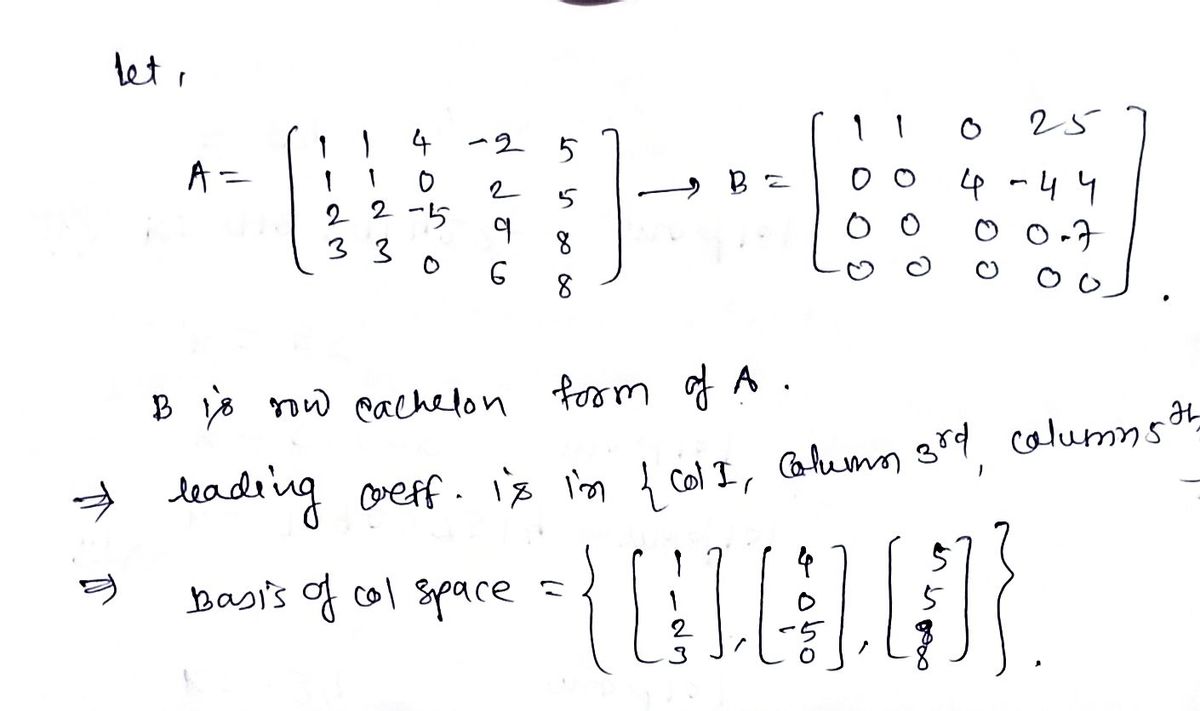 let,
A = [1 1 4 -2 5
1 1 0 2 5
2 2 -5 9 8
3 3 0 6 8] → B = [1 1 0 2 5
0 0 4 -4 4
0 0 0 0 -7
0 0 0 0 0].
B is row eachelon form of A.
⇒ leading coeff. is in { Col I, Column 3rd, column 5th
⇒ Basis of col space = { [1 1 2 3], [4 0 -5 0], [5 5 8 8] }.